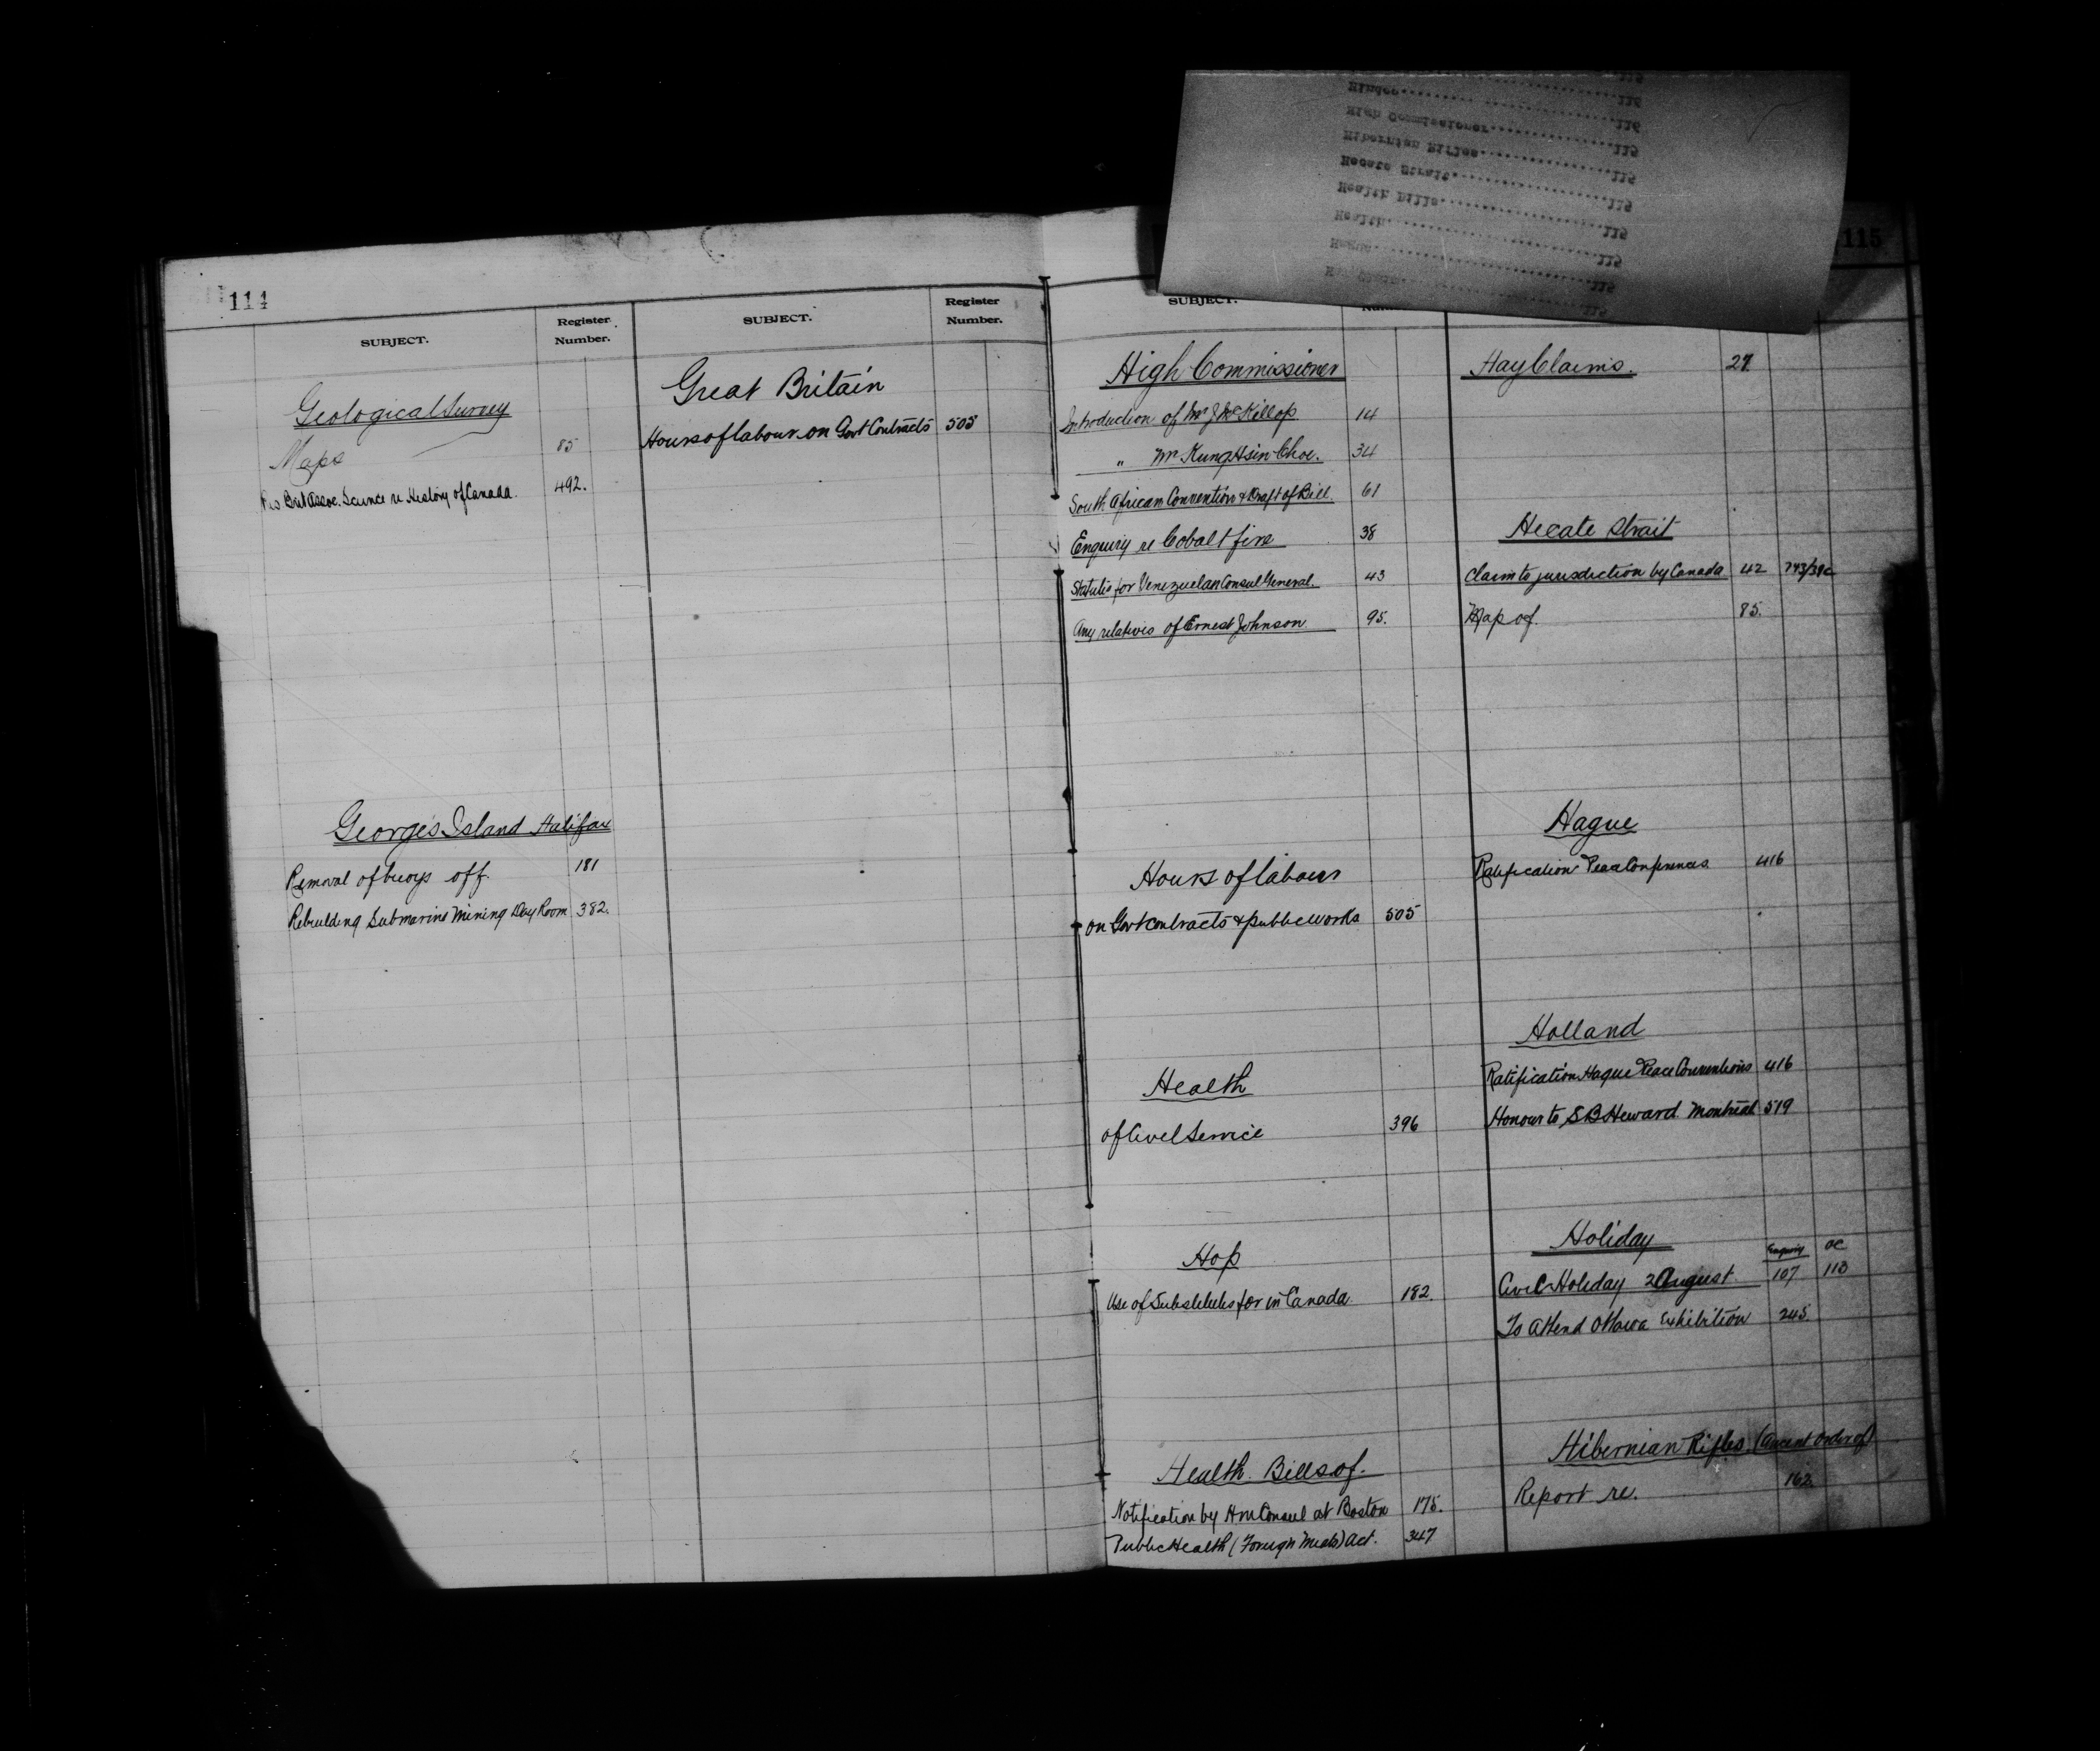 114
SUBJECT.
Register Number.
Geological Survey
Maps 85
Brit Assoc. Science re History of Canada. 492.
Georges Island Halifax
Removal of buoys off. 181
Rebuilding Submarine Mining Day Room 382.
SUBJECT.
Register Number.
Great Britain
Hours of labour on Govt Contracts 505
SUBJECT.
High Commissioner
Introduction of Mr J McKillop 14
" Mr Kung Hsin Choe. 34
South African Convention & Draft of Bill. 61
Enquiry re Cobalt fire 38
Statutes for Venezuelan Consul General. 43
Any relatives of Ernest Johnson 95.
Hours of labour
on Govt contracts & public works 505
Health
of Civil Service 396
Hop
Use of Substitutes for in Canada 182.
Health Bills of.
Notification by HM Consul at Boston 175.
Public Health (Foreign Meats) Act. 347
115
Hay Claims. 27
Hecate Strait
Claim to jurisdiction by Canada 42
Map of. 85.
Hague
Ratification Peace Conferences 416
Holland
Ratification Hague Peace Conventions 416
Honour to S B Heward Montreal 519
Holiday
Enquiry OC
Civic Holiday 2 August. 107 113
To attend Ottawa Exhibition 245.
Hibernian Rifles (Ancient Order of)
Report re. 162.
Hindoo 116
High Commissioner 116
Hibernian Rifles 115
Hecate Strait 115
Health Bills 115
Health 115
Hague 115
Hay Claims 115